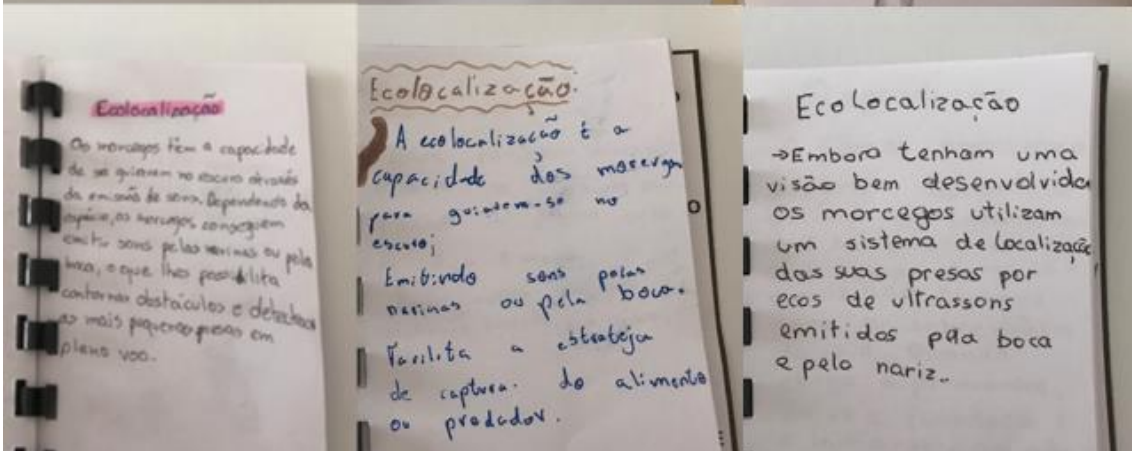 Ecolocalização
Os morcegos têm a capacidade
de se guiarem no escuro através
da emissão de sons. Dependendo da
espécie, os morcegos conseguem
emitir sons pelas narinas ou pela
boca, o que lhes possibilita
contornar obstáculos e detectar
as mais pequenas presas em
pleno voo.
Ecolocalização.
A ecolocalização é a
capacidade dos
para guiarem-se no
escuro;
Emitindo sons pelas
narinas ou pela boca.
Facilita a estrateja
de captura. do alimento
ou predador.
Ecolocalização
→Embora tenham uma
visão bem desenvolvida
os morcegos utilizam
um sistema de localização
das suas presas por
ecos de ultrassons
emitidos pela boca
e pelo nariz..